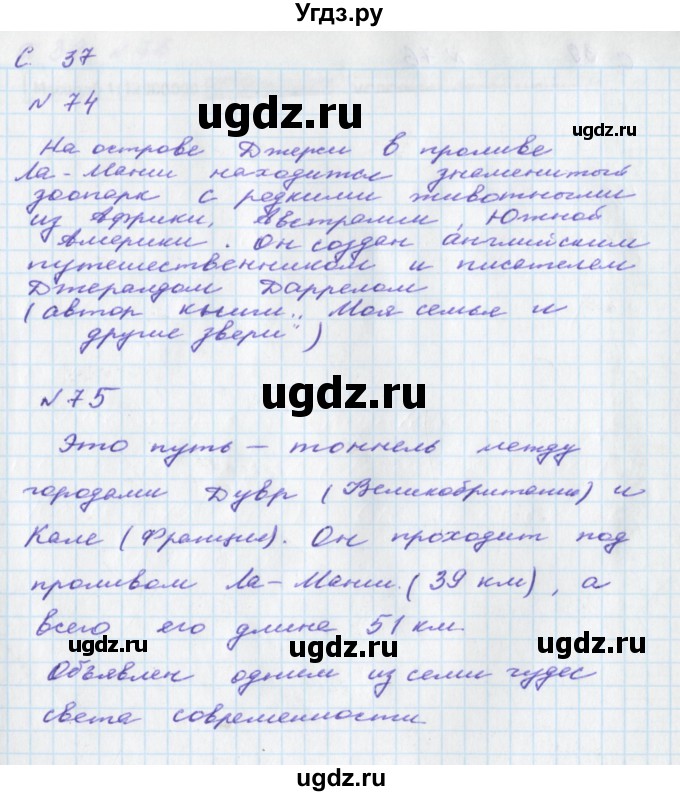 Угдз.ру
С 37
ugdz.ru
N 74
ugdz.ru
ugdz.ru
На острове Джерси в проливе
Ла-Манш находится знаменитый
зоопарк с редкими животными
из Африки, Австралии, Южной
Америки. Он создан английским
путешественником и писателем
Джеральдом Дарреллом
(автор книги „Моя семья и
другие звери")
ugdz.ru
N 75
ugdz.ru
Это путь – тоннель между
городами Дувр (Великобритания) и
Кале (Франция). Он проходит под
проливом Ла-Манш (39 км), а
всего его длина 51 км.
ugdz.ru
ugdz.ru
ugdz.ru
Объявлен одним из семи чудес
света современности
ugdz.ru